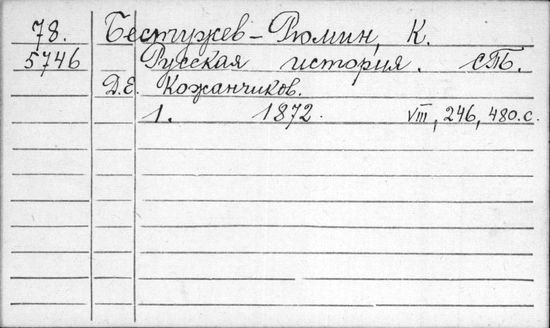 78. Бестужев-Рюмин, К.
5746 Русская история. СПб.
Д.Е. Кожанчиков.
1. 1872. VIII, 246, 480. с.